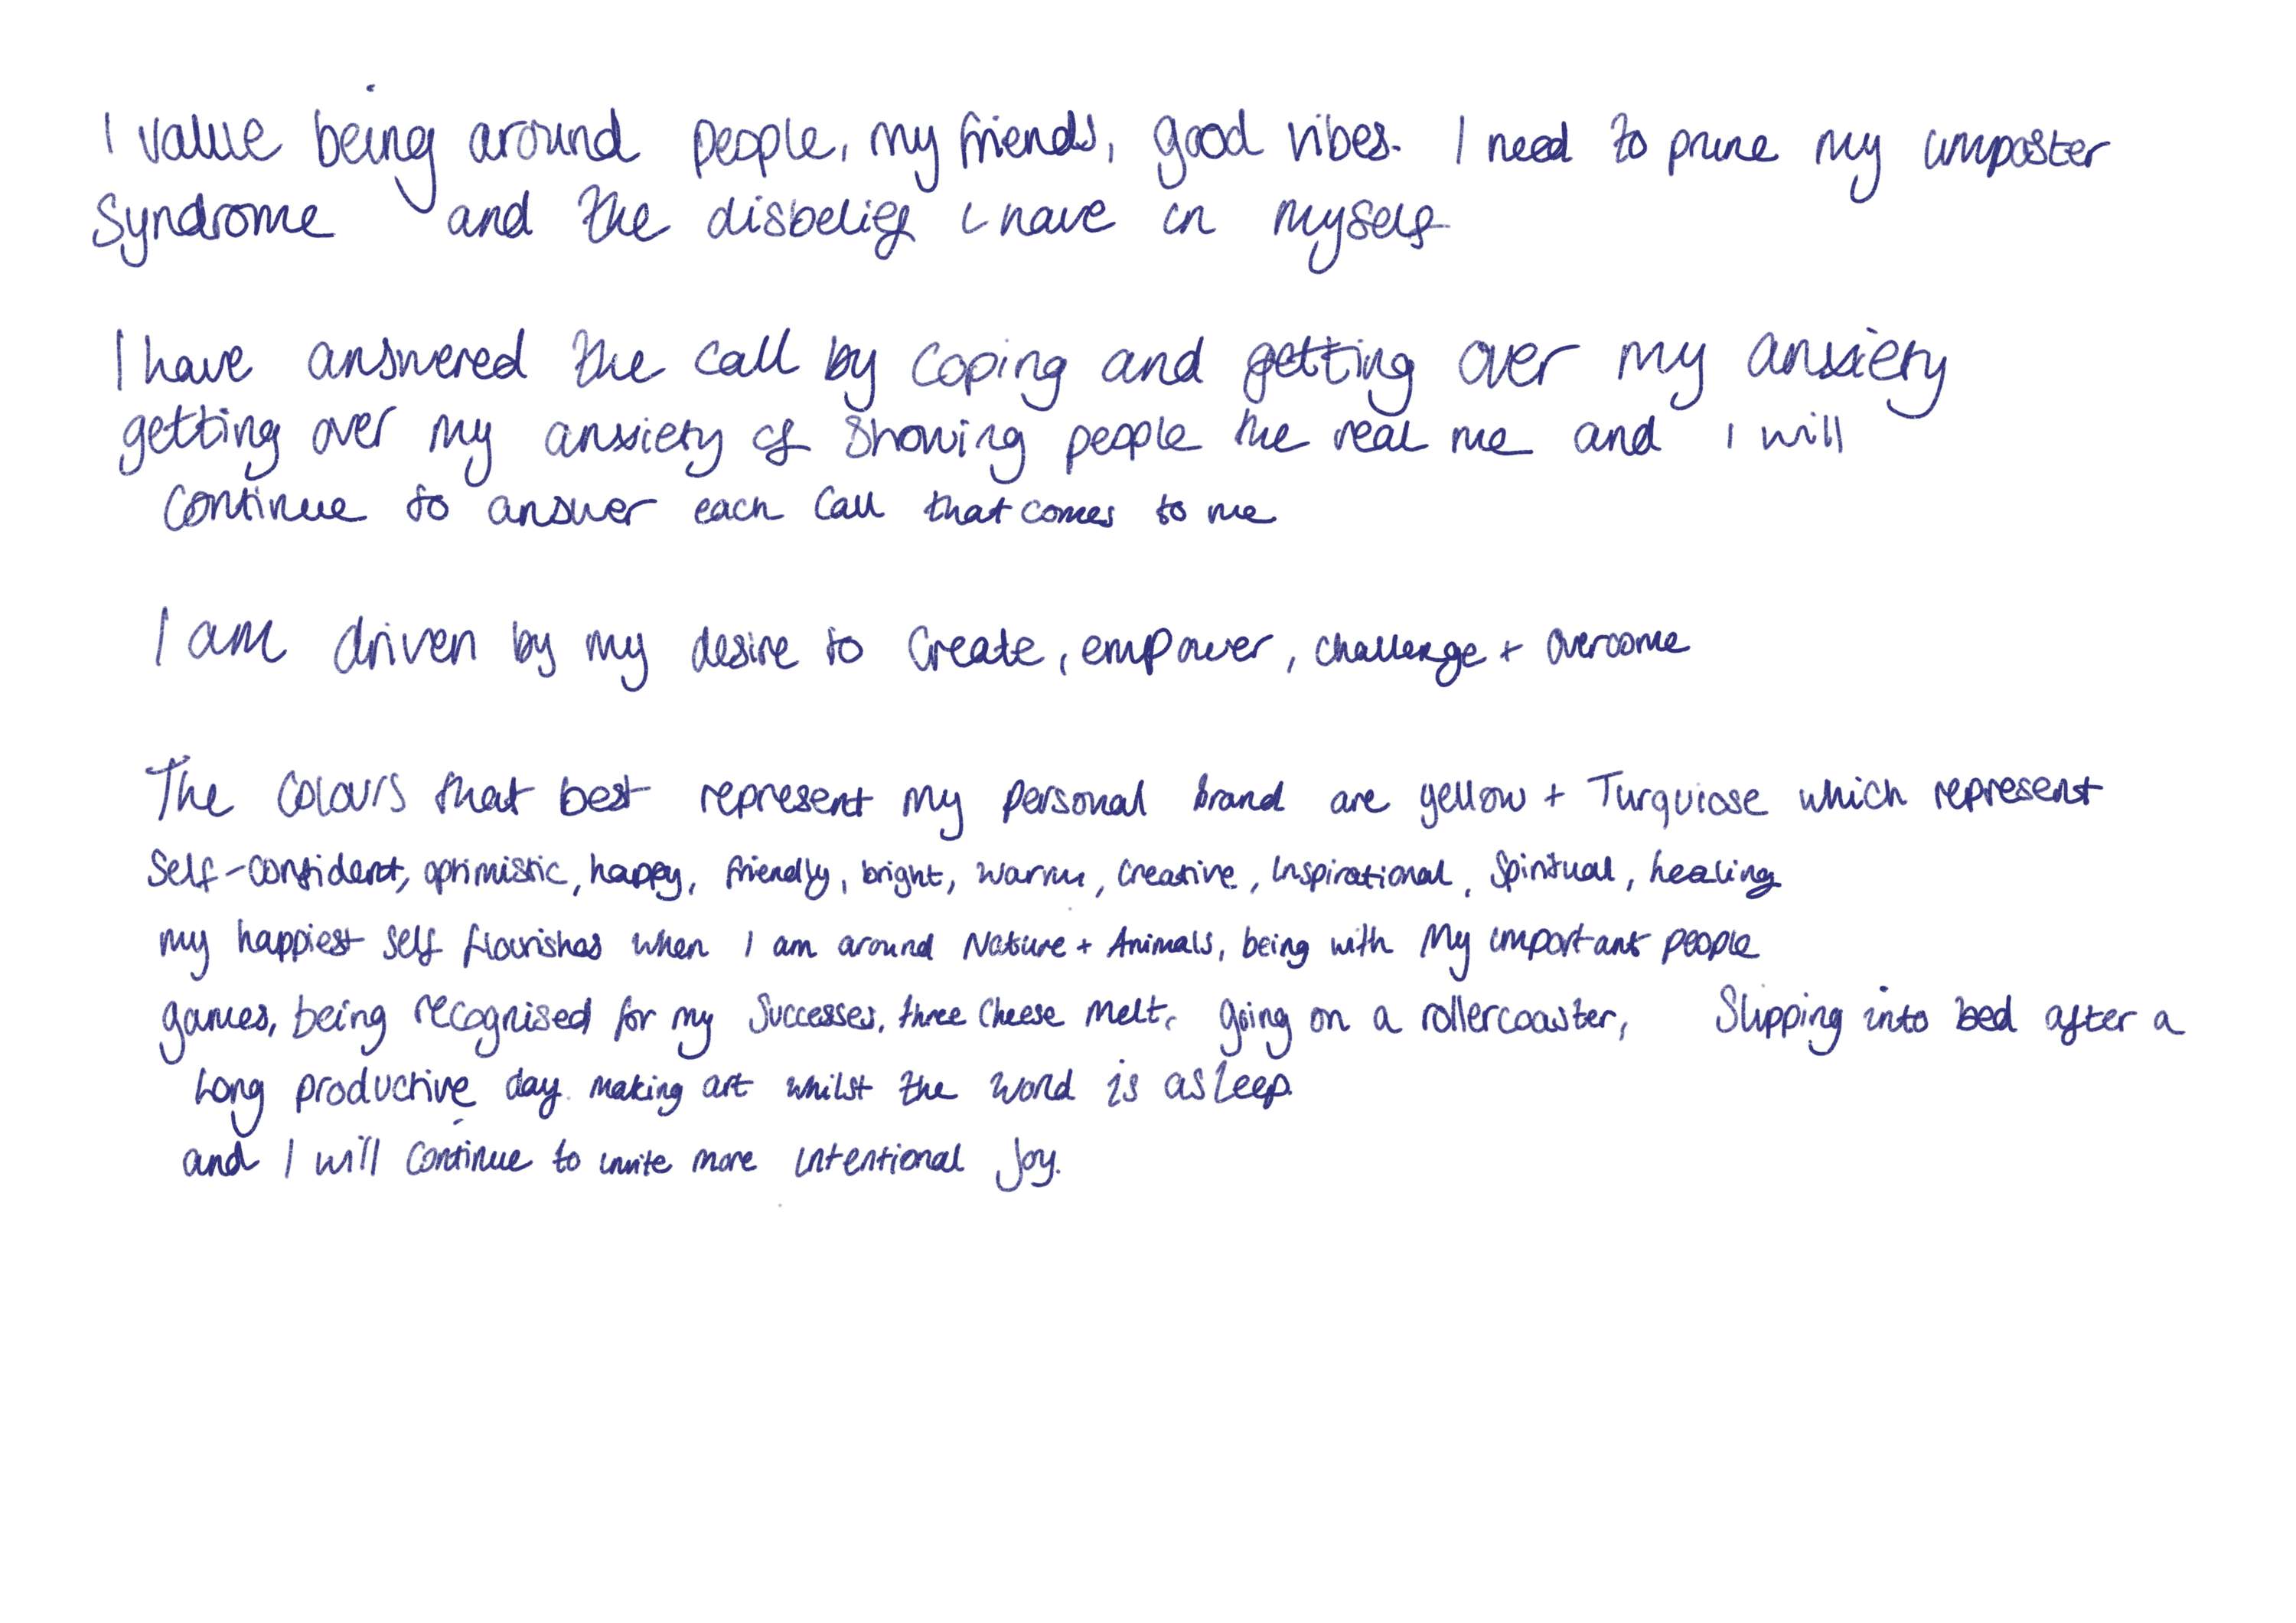 I value being around people, my friends, good vibes. I need to prune my imposter
Syndrome and the disbelief i have in myself
I have answered the call by coping and getting over my anxiety
getting over my anxiety of showing people the real me and I will
continue to answer each call that comes to me
I am driven by my desire to create, empower, challenge + overcome
The colours that best represent my personal brand are yellow + Turquiose which represent
Self-confident, optimistic, happy, friendly, bright, warm, creative, Inspirational, Spiritual, healing
my happiest self flourishes when I am around Nature + Animals, being with My important people
games, being recognised for my Successes, three cheese Melt, going on a rollercoaster, Slipping into bed after a
Long productive day. making art whilst the world is asleep.
and I will continue to invite more intentional Joy.